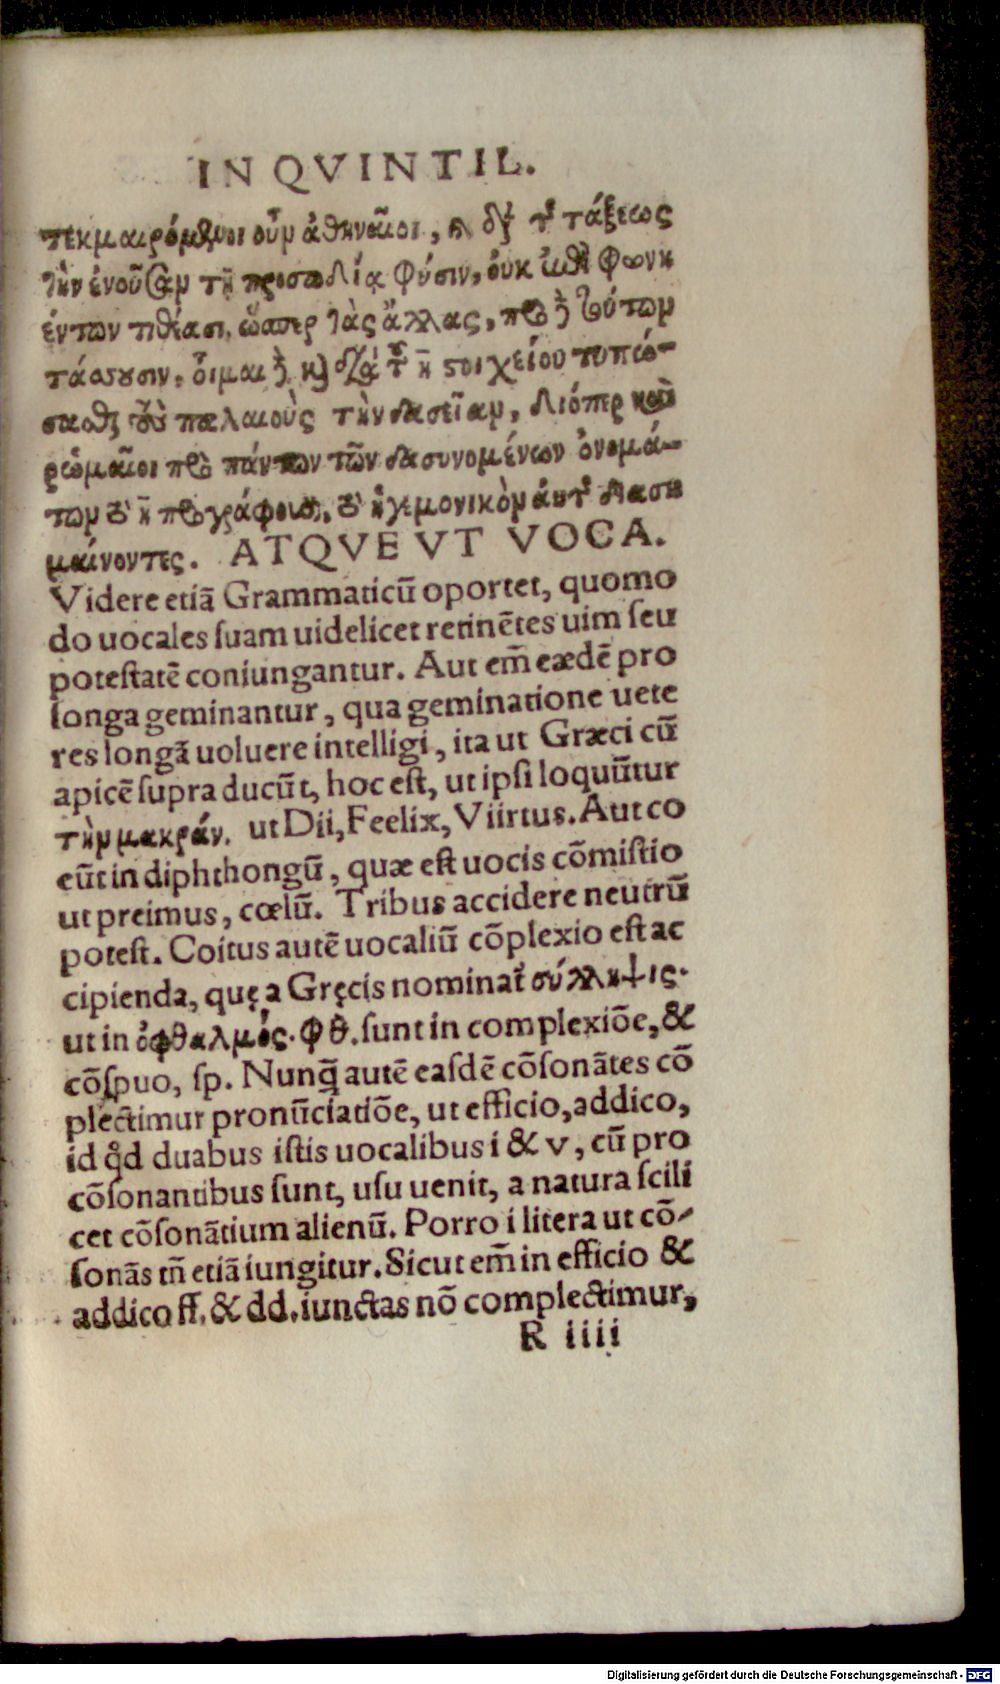 IN QVINTIL.
τεκμαιρόμενοι οὖν ἀθηναῖοι, τάξεως
τὴν ἐνοῦσαν τῇ προσωδίᾳ φύσιν, οὐκ φωνη
έντων τιθέασι, ὥσπερ τὰς ἄλλας, τούτων
τάσσουσιν. οἶμαι στοιχείου τυπώ-
σαθς παλαιοὺς τὴν δασεῖαν, διόπερ καὶ
ρωμαῖοι πρὸ πάντων τῶν δασυνομένων ὀνομά-
των προγράφουσι, ἡγεμονικὸν διαση
μαίνοντες. ATQVE VT VOCA.
Videre etiā Grammaticū oportet, quomo
do uocales ſuam uidelicet retinētes uim ſeu
poteſtatē coniungantur. Aut em̄ eædē pro
longa geminantur, qua geminatione uete
res longā uoluere intelligi, ita ut Græci cū
apicē ſupra ducūt, hoc eſt, ut ipſi loquūtur
τὴν μακράν. ut Dii, Feelix, Viirtus. Aut co
eūt in diphthongū, quæ eſt uocis cōmiſtio
ut preimus, cœlū. Tribus accidere neutrū
poteſt. Coitus autē uocaliū cōplexio eſt ac
cipienda, quę a Gręcis nominat̄ σύλληψις.
ut in ὀφθαλμός. φθ. ſunt in complexiōe, &
cōſpuo, ſp. Nunq̄ autē eaſdē cōſonātes cō
plectimur pronūciatiōe, ut efficio, addico,
id qd duabus iſtis uocalibus i & v, cū pro
cōſonantibus ſunt, uſu uenit, a natura ſcili
cet cōſonātium alienū. Porro i litera ut cō-
ſonās tn̄ etiā iungitur. Sicut em̄ in efficio &
addico ff. & dd. iunctas nō complectimur,
R iiii
Digitalisierung gefördert durch die Deutsche Forschungsgemeinschaft - DFG